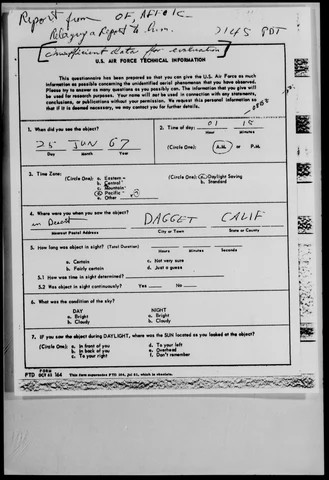 Report from OF, AFFOIC
Relaying a Report to him. 2145 PDT
insufficient data for evaluation
U.S. AIR FORCE TECHNICAL INFORMATION
This questionnaire has been prepared so that you can give the U.S. Air Force as much
information as possible concerning the unidentified aerial phenomenon that you have observed.
Please try to answer as many questions as you possibly can. The information that you give will
be used for research purposes. Your name will not be used in connection with any statements,
conclusions, or publications without your permission. We request this personal information so
that if it is deemed necessary, we may contact you for further details.
1. When did you see the object?
25 JUN 67
Day Month Year
2. Time of day: 01 15
Hour Minutes
(Circle One): A.M. or P.M.
3. Time Zone:
(Circle One): a. Eastern
b. Central
c. Mountain
d. Pacific
e. Other
(Circle One): a. Daylight Saving
b. Standard
4. Where were you when you saw the object?
in Desert DAGGET CALIF
Nearest Postal Address City or Town State or County
5. How long was object in sight? (Total Duration)
Hours Minutes Seconds
a. Certain c. Not very sure
b. Fairly certain d. Just a guess
5.1 How was time in sight determined?
5.2 Was object in sight continuously? Yes No
6. What was the condition of the sky?
DAY NIGHT
a. Bright a. Bright
b. Cloudy b. Cloudy
7. IF you saw the object during DAYLIGHT, where was the SUN located as you looked at the object?
(Circle One): a. In front of you d. To your left
b. In back of you e. Overhead
c. To your right f. Don't remember
FORM
FTD OCT 62 164 This form supersedes FTD 164, Jul 61, which is obsolete.